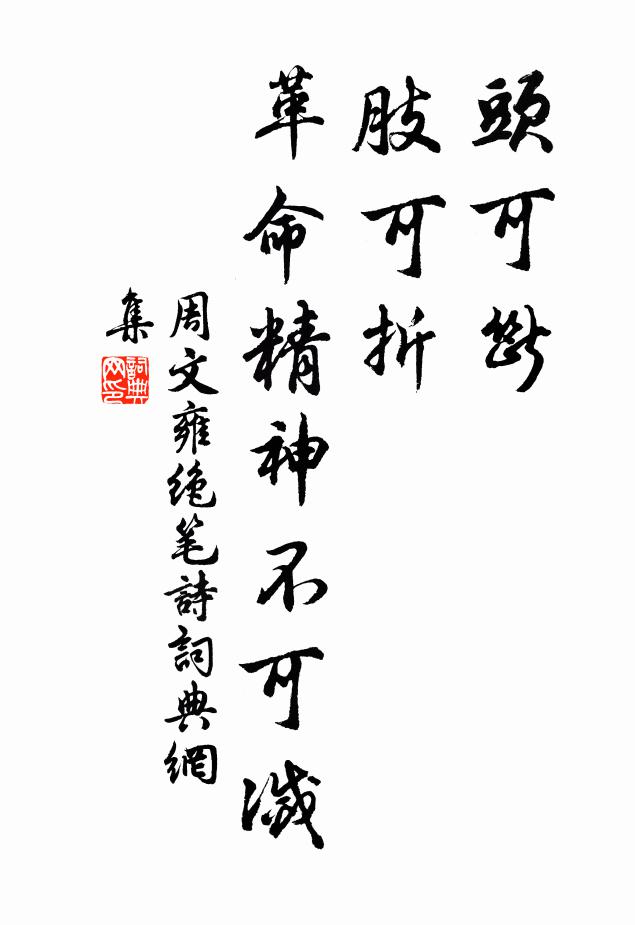 頭可斷
肢可折
革命精神不可滅
周文雍绝笔詩詞典網
集
詞典网印